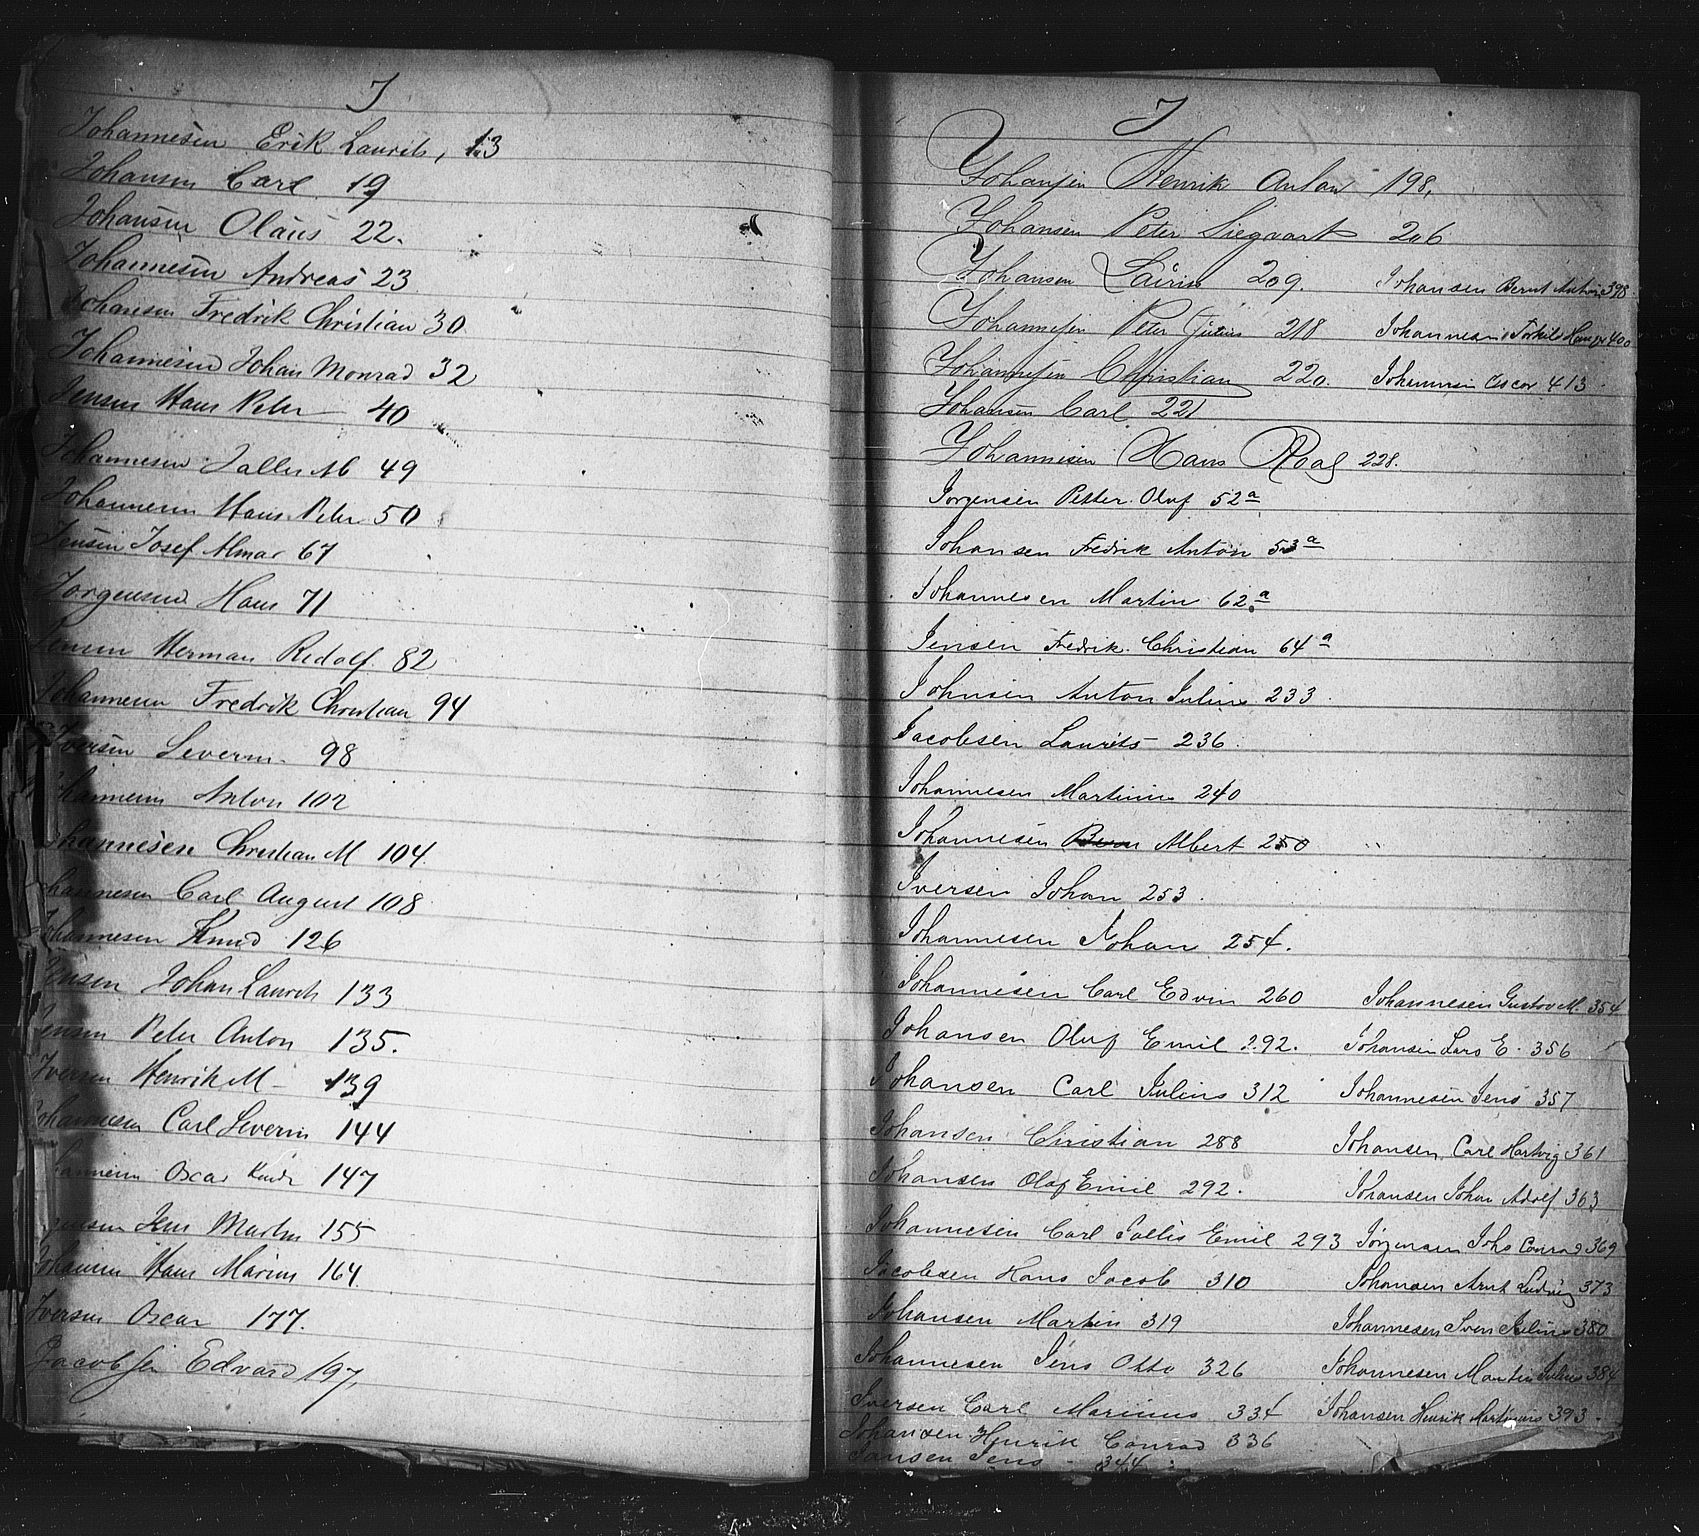 J
Johannesen Erik Laurits, 13
Johansen Carl 19
Johansen Olaus 22.
Johannesen Andreas 23
Johansen Fredrik Christian 30
Johannesen Johan Monrad 32
Jensen Hans Peter 40
Johannesen M 49
Johannesen Hans Peter 50
Jensen Josef Almar 67
Jorgensen Hans 71
Jensen Herman Redolf. 82
Johannesen Fredrik Christian 94
Iversen Severin 98
Johannesen Anton 102
Johannesen Christian M 104.
Johannesen Carl August 108
Johannesen Knud 126
Jensen Johan Laurits 133
Jensen Peter Anton 135.
Iversen Henrik M - 139
Johannesen Carl Severin 144
Johannesen Oscar 147
Jens Martin 155
Johansen Hans Marius 164
Iversen Oscar 177.
Jacobsen Edvard 197,
J
Johansen Henrik Anton 198,
Johansen Peter Siegvart 206
Johansen 209. Johansen Bernt Anton 398
Johannesen Peter Julius 218 Johannesen Torkild 400
Johannesen Christian 220. Johannesen Oscar 413
Johansen Carl 221
Johannesen Hans Roal 228.
Jorgensen Petter Oluf 52 a
Johansen Fredrik Anton 53 a
Johannesen Martin 62 a
Jensen Fredrik Christian 64 a
Johnsen Anton Julius 233.
Jacobsen Laurits 236.
Johannesen Martinius 240
Johannesen Albert 250
Iversen Johan 253.
Johannesen Johan 254.
Johannesen Carl Edvin 260 Johannesen Gustav M. 354
Johansen Oluf Emil 292. Johansen Lars E. 356
Johansen Carl Julius 312 Johannesen Jens 357
Johansen Christian 288 Johansen Carl Hartvig 361
Johansen Olaf Emil 292. Johansen Johan Adolf 363
Johannesen Carl Emil 293 Jörgensen Johs Conrad 369
Jacobsen Hans Jacob 310 Johansen Arnt Ludvig 373
Johansen Martin 319 Johannesen Sven Julius 380
Johannesen Jens Otto 326 Johannesen Martin Julius 384
Iversen Carl Marinus 334 Johansen Henrik Martinius 393
Johansen Henrik Conrad 336
Jansen Jens 344